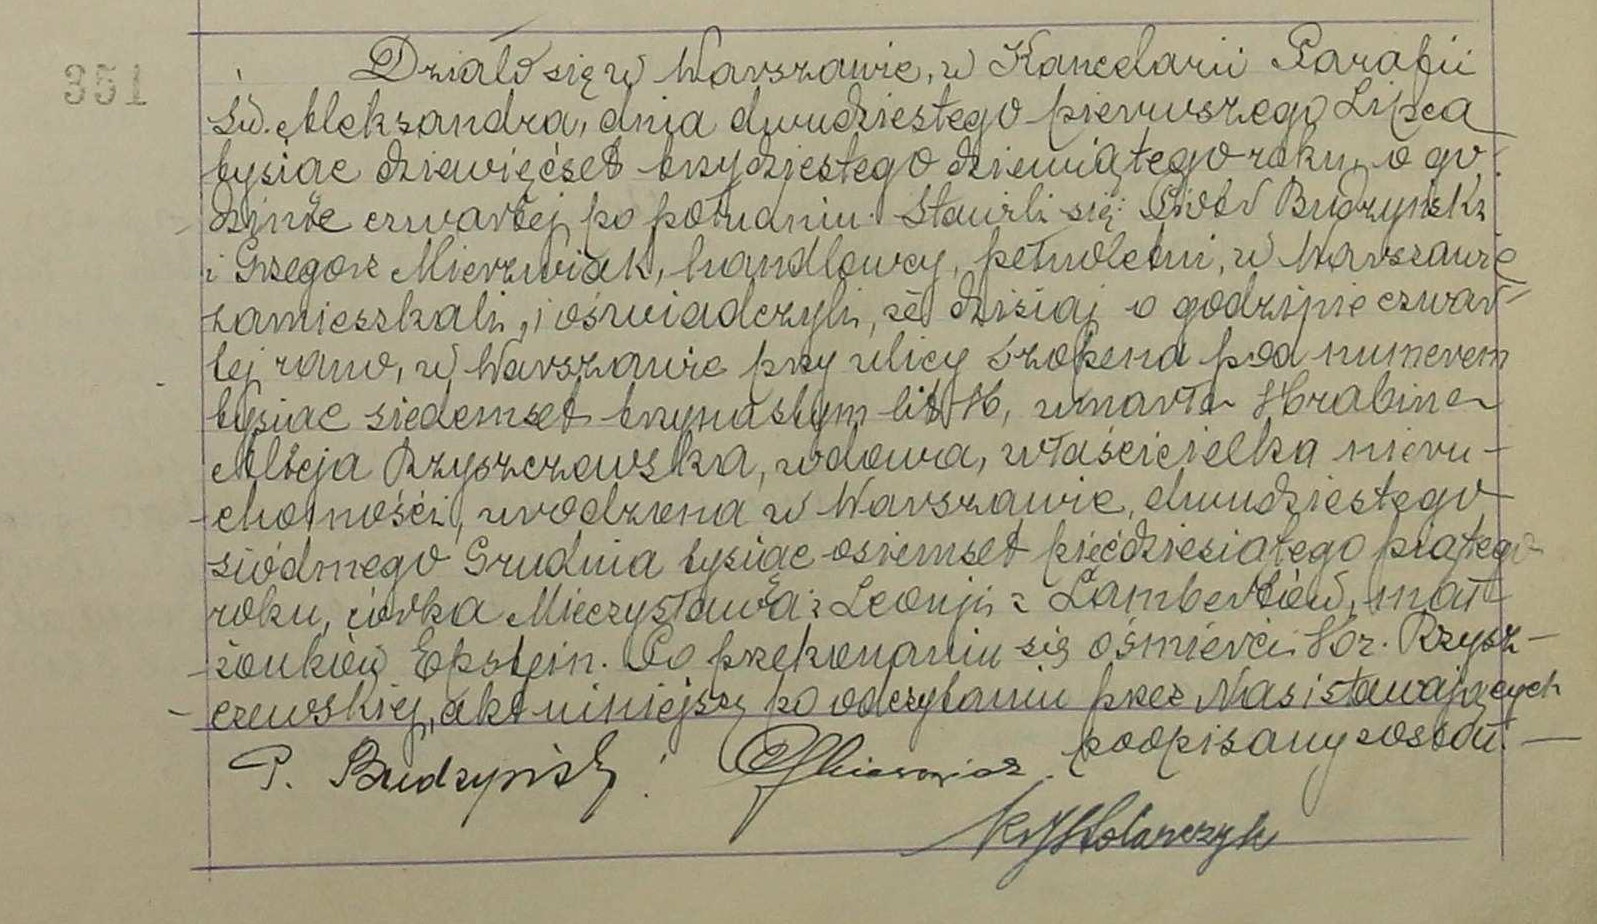 351
Działo się w Warszawie, w Kancelarii Parafii
św. Aleksandra, dnia dwudziestego pierwszego Lipca
tysiąc dziewięćset trzydziestego dziewiątego roku, o go-
dzinie czwartej po południu. Stawili się: Piotr Budzyński
i Grzegorz Mierzwiak, handlowcy, pełnoletni, w Warszawie
zamieszkali, i oświadczyli, że dzisiaj o godzinie czwar-
tej rano, w Warszawie przy ulicy Szopena pod numerem
tysiąc siedemset trzynastym lit H, zmarła Hrabina
Alicja Rzyszczewska, wdowa, właścicielka nieru-
chomości, urodzona w Warszawie, dwudziestego
siódmego Grudnia tysiąc osiemset pięćdziesiątego piątego
roku, córka Mieczysława i Leonji z Lambertów, mał-
żonków Epstein. Po przekonaniu się o śmierci Hr. Rzysz-
czewskiej, akt niniejszy po odczytaniu przez Nas i stawających
podpisany został. —
P. Budzyński